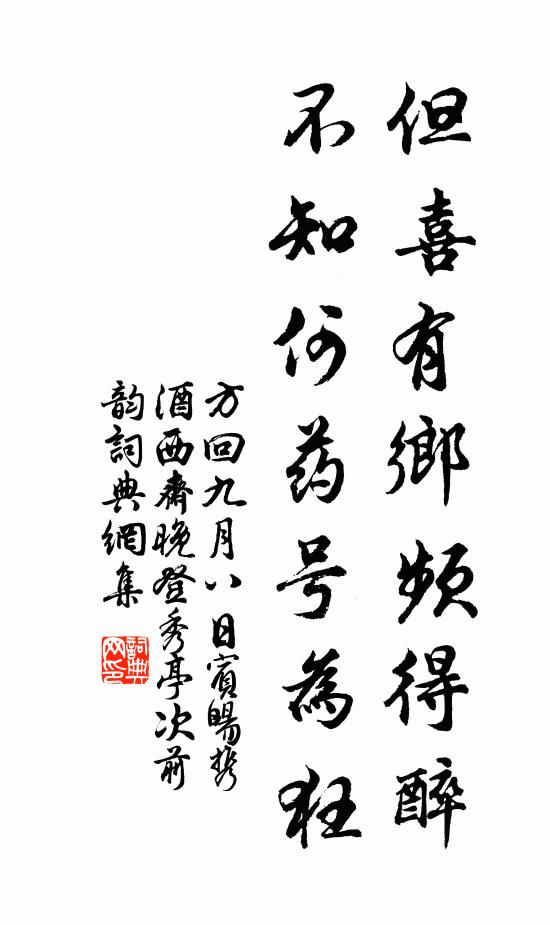 但喜有鄉頻得醉
不知何药号為狂
方回九月八日賓暘携
酒西齋晚登秀亭次前
韵詞典網集
詞典网印